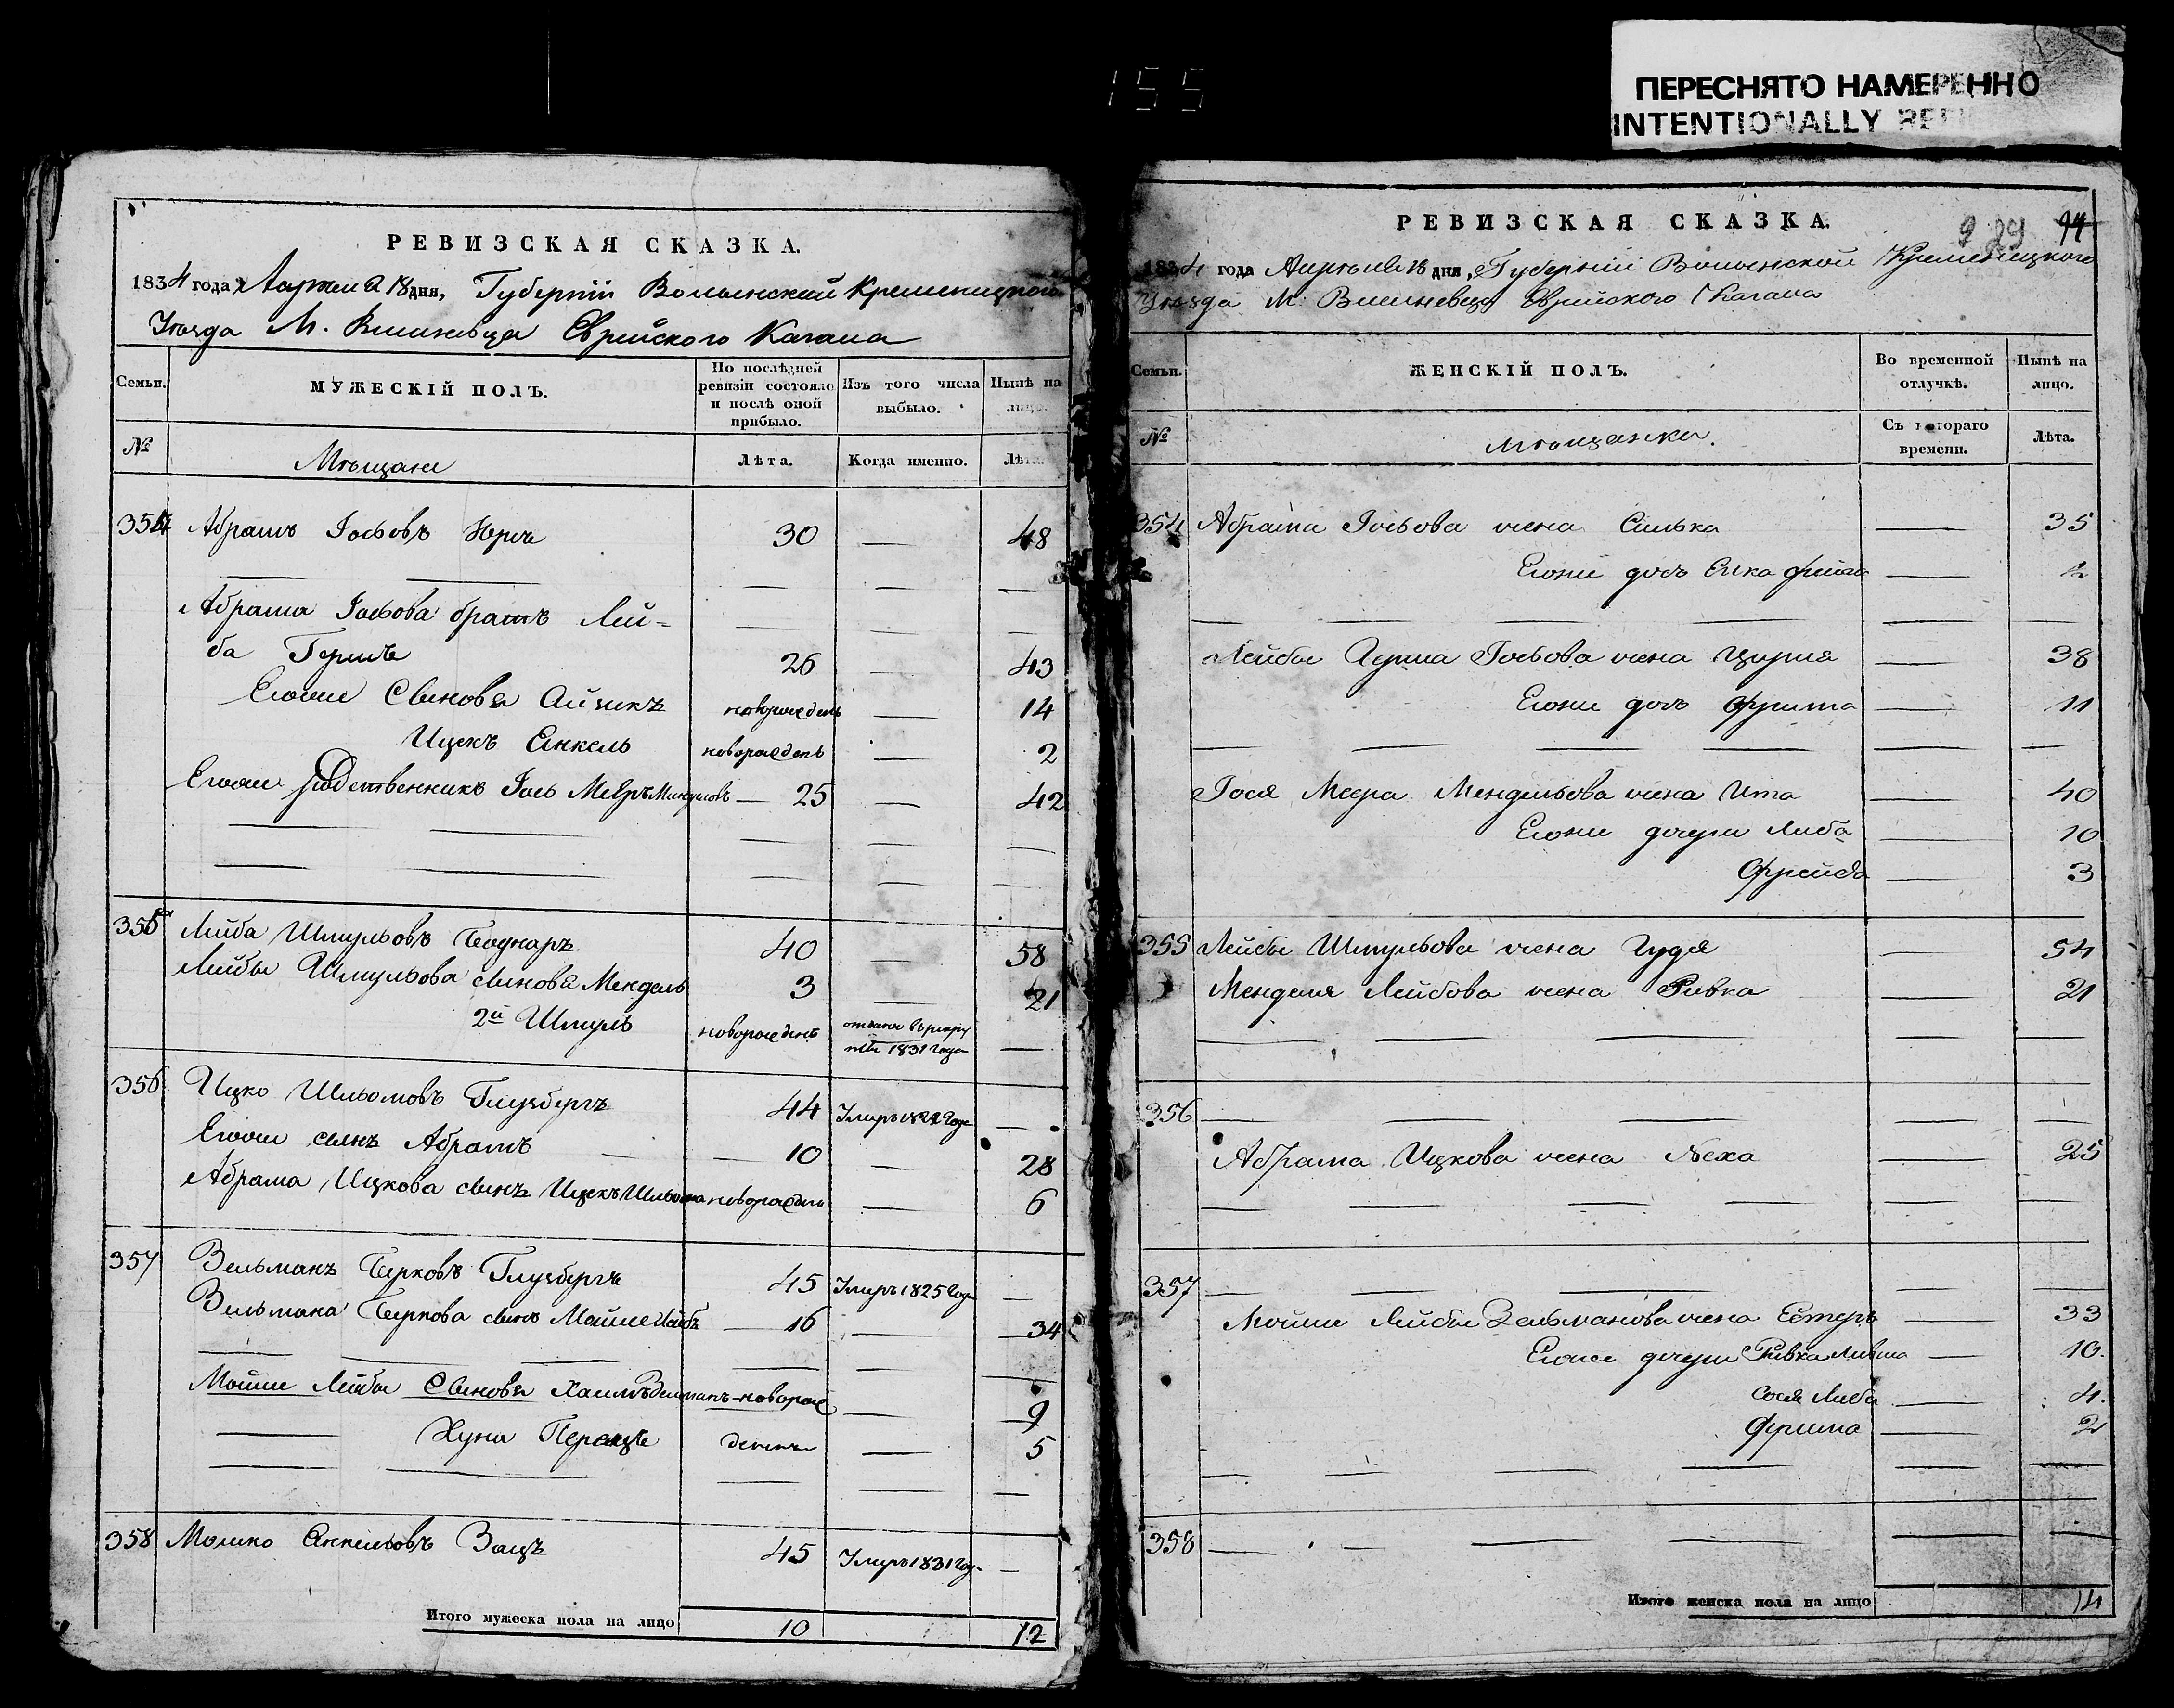 155
ПЕРЕСНЯТО НАМЕРЕННО
INTENTIONALLY
РЕВИЗСКАЯ СКАЗКА.
1834 года Апреля 18 дня, Губернiи Волынской Кременецкого
Уѣзда М. Вишневца Еврейского Кагала
Семьи.
МУЖЕСКIЙ ПОЛЪ.
По послѣдней ревизiи состояло и послѣ оной прибыло.
Изъ того числа выбыло.
Нынѣ на лицо.
№
Мѣщане
Лѣта.
Когда именно.
Лѣта.
354 Абрамъ Іосьовъ 30 — 48
Абрама Іосьова братъ Лей-
ба Гершъ 26 — 43
Егоже Сыновья Айзикъ новорожденъ — 14
Ицекъ Янкель новорожденъ — 2
Егоже родственникъ Іось Мееръ — 25 — 42
355 Лейба Шмульовъ Боднаръ 40 — 58
Лейбы Шмульова сыновья Мендель 3 — 21
2й Шмуль новорожденъ 1831 года —
356 Ицко Шльомовъ Глузбергъ 44 Умеръ —
Егоже сынъ Абрамъ — 10 — 28
Абрама Ицкова сынъ Ицекъ Шльома новорожденъ — 6
357 Зельманъ Берковъ Глузбергъ 45 Умеръ 1825 года —
Зельмана Беркова сынъ Мошие Лейбъ 16 — 34
Мошие Лейбы Сыновья Хаимъ Зельманъ новорож — 9
Хуна Перецъ денны — 5
358 Мошко Янкельовъ Зацъ 45 Умеръ 1831 год. —
Итого мужеска пола на лицо 10 12
РЕВИЗСКАЯ СКАЗКА.
94
1834 года Апрѣля 18 дня, Губернiи Волынской Кременецкого
Уѣзда М. Вишневца Еврейского Кагала
Семьи.
ЖЕНСКIЙ ПОЛЪ.
Во временной отлучкѣ.
Нынѣ на лицо.
№
Мѣщанки.
Съ котораго времени.
Лѣта.
354 Абрама Іосьова жена Силька — 35
Егоже дочь —
Лейбы Герша Іосьова жена Цирля — 38
Егоже дочь Фрима — 11
Іося Меера Мендельова жена Ита — 40
Егоже дочери Либа — 10
Фрейда — 3
355 Лейбы Шмульова жена Гудя — 54
Менделя Лейбова жена Ривка — 21
356
Абрама Ицкова жена Неха — 25
357
Мошие Лейбы Зельманова жена Естеръ — 33
Егоже дочери Ривка — 10.
Сося Либа — 4.
Фрима — 2
358
Итого женска пола на лицо 14